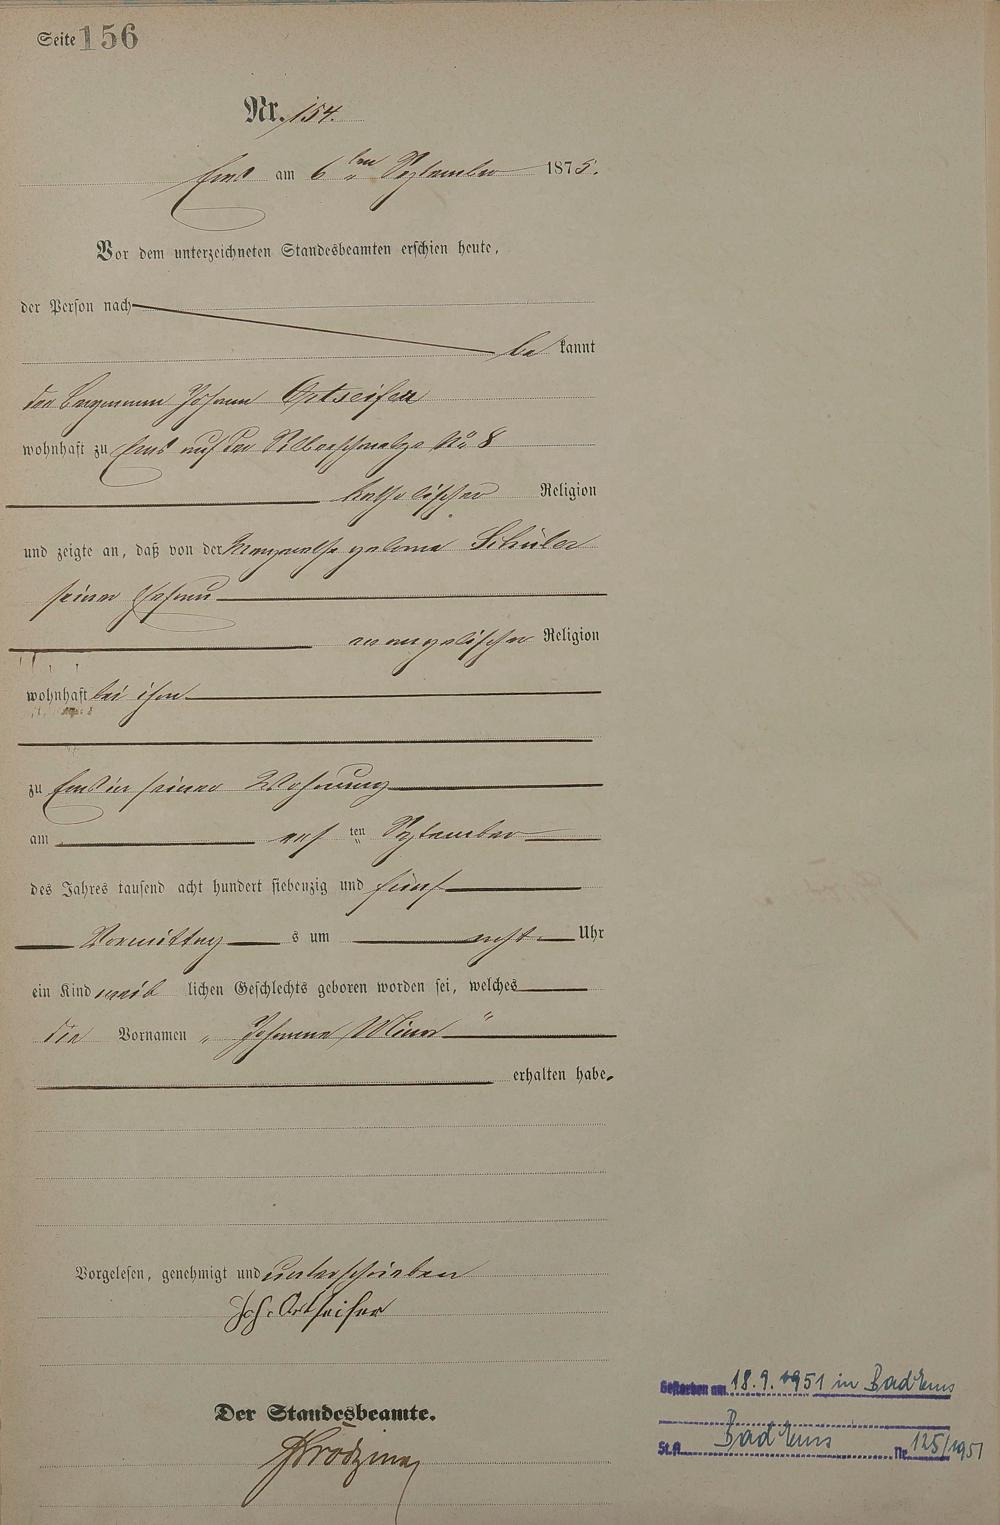 Seite 156
Nr. 154.
Ems am 6ten September 1875.
Vor dem unterzeichneten Standesbeamten erschien heute,
der Person nach
be kannt
der Bergmann Johann Ortseifen
wohnhaft zu Ems auf der Silberschmelze No 8
katholischer Religion
und zeigte an, daß von der geborne Schüler
seiner Ehefrau
evangelischer Religion
wohnhaft bei ihm
zu Ems in seiner Wohnung
am ten September
des Jahres tausend acht hundert siebenzig und fünf
Vormittag s um acht Uhr
ein Kind weib lichen Geschlechts geboren worden sei, welches
die Vornamen „Johanna Mina"
erhalten habe.
Vorgelesen, genehmigt und unterschrieben
Joh. Ortseifen
Der Standesbeamte.
Gestorben am 18.9.1951 in Bad Ems
St.A. Bad Ems Nr. 125/1951